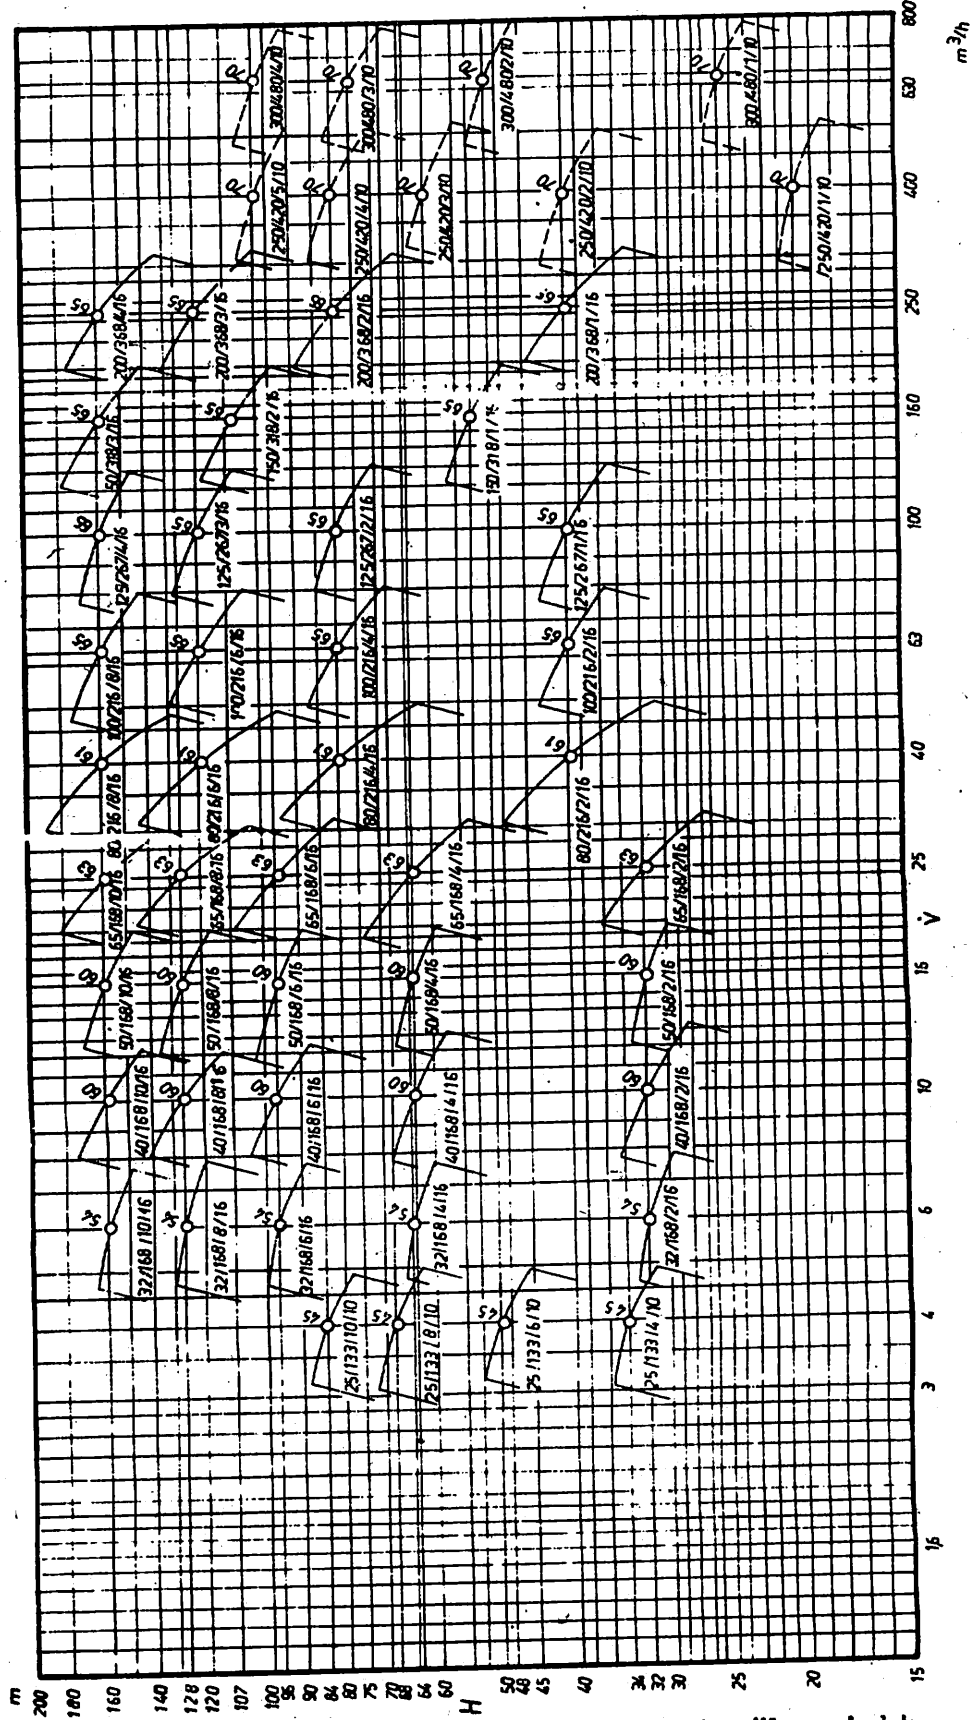 m
200
180
160
140
128
120
107
100
96
90
84
80
75
70
68
64
60
50
48
45
40
36
32
30
25
20
15
H
1,6
3
4
6
10
16
25
40
63
100
160
250
400
630
800
V̇
m³/h
25/133/10/10
45
25/133/8/10
45
25/133/6/10
45
25/133/4/10
45
32/168/10/16
54
32/168/8/16
32/168/6/16
54
32/168/4/16
54
32/168/2/16
54
40/168/10/16
60
40/168/8/16
60
40/168/6/16
60
40/168/4/16
60
40/168/2/16
60
50/168/10/16
60
50/168/8/16
60
50/168/6/16
60
50/168/4/16
60
50/168/2/16
60
65/168/10/16
63
65/168/8/16
63
65/168/6/16
63
65/168/4/16
63
65/168/2/16
63
80/216/8/16
61
80/216/6/16
61
80/216/4/16
61
80/216/2/16
61
100/216/8/16
65
100/216/6/16
65
100/216/4/16
65
100/216/2/16
65
125/267/4/16
68
125/267/3/16
65
125/267/2/16
65
125/267/1/16
65
50/318/3/16
65
150/318/2/16
65
150/318/1/16
65
200/368/4/16
65
200/368/3/16
65
200/368/2/16
200/368/1/16
250/420/5/10
70
250/420/4/10
70
250/420/3/10
70
250/420/2/10
70
250/420/1/10
70
300/480/4/10
70
300/480/3/10
70
300/480/2/10
70
300/480/1/10
70